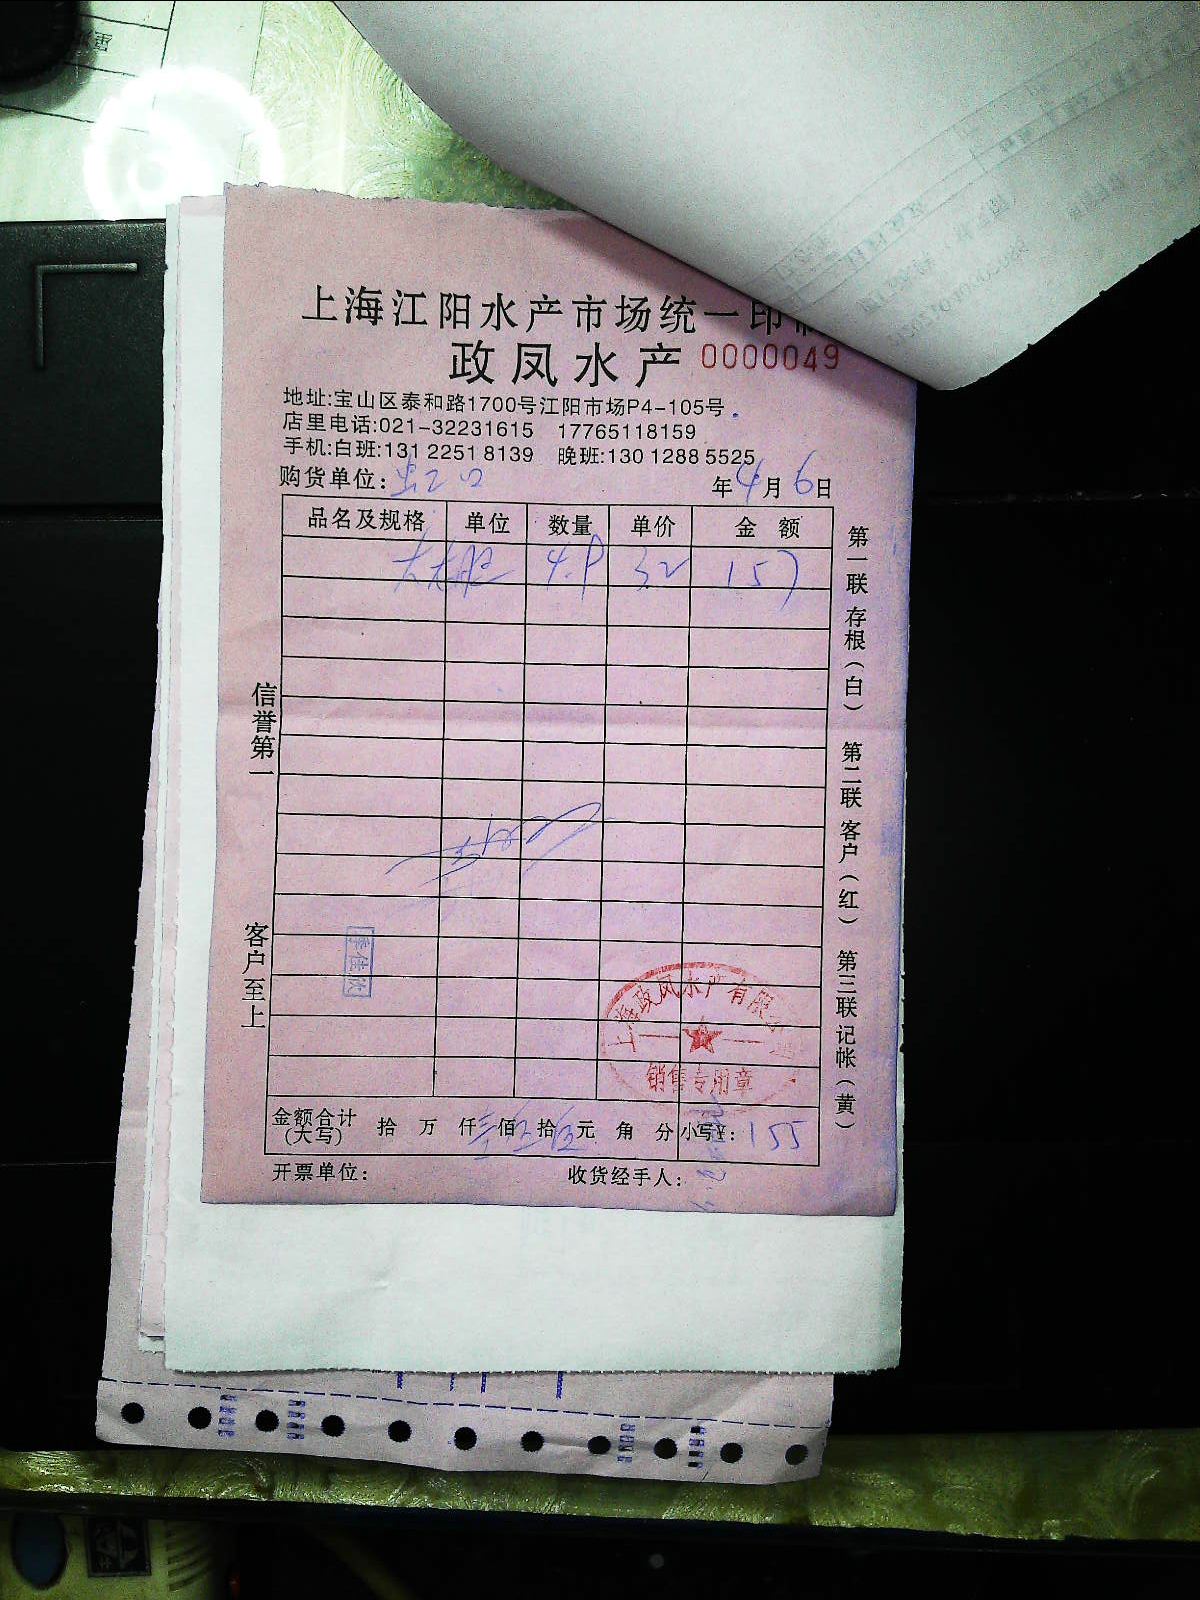 上海江阳水产市场统一印制
政凤水产 0000049
地址:宝山区泰和路1700号江阳市场P4-105号
店里电话:021-32231615 17765118159
手机:白班:131 2251 8139 晚班:130 1288 5525
购货单位: 年4月6日
品名及规格 单位 数量 单价 金 额
32 157
信誉第一
客户至上
第一联 存根(白) 第二联 客户(红) 第三联 记帐(黄)
上海政凤水产有限公司
销售专用章
金额合计(大写) 拾 万 仟 佰 拾 元 角 分 小写¥: 155
开票单位: 收货经手人: